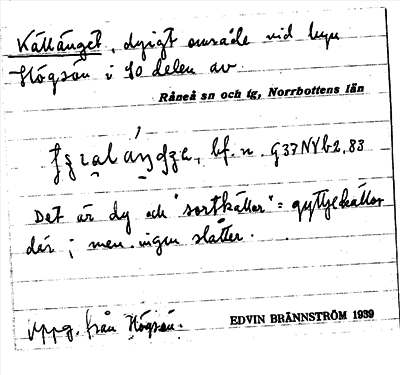 Källänget, dyigt område vid byn
Högsön i SO delen av
Råneå sn och tg, Norrbottens län
bf. n. G37NVb2,83
Det är dy och "sortkällor" = gyttjekällor
där; men ingen slåtter.
Uppg. från Högsön.
EDVIN BRÄNNSTRÖM 1939